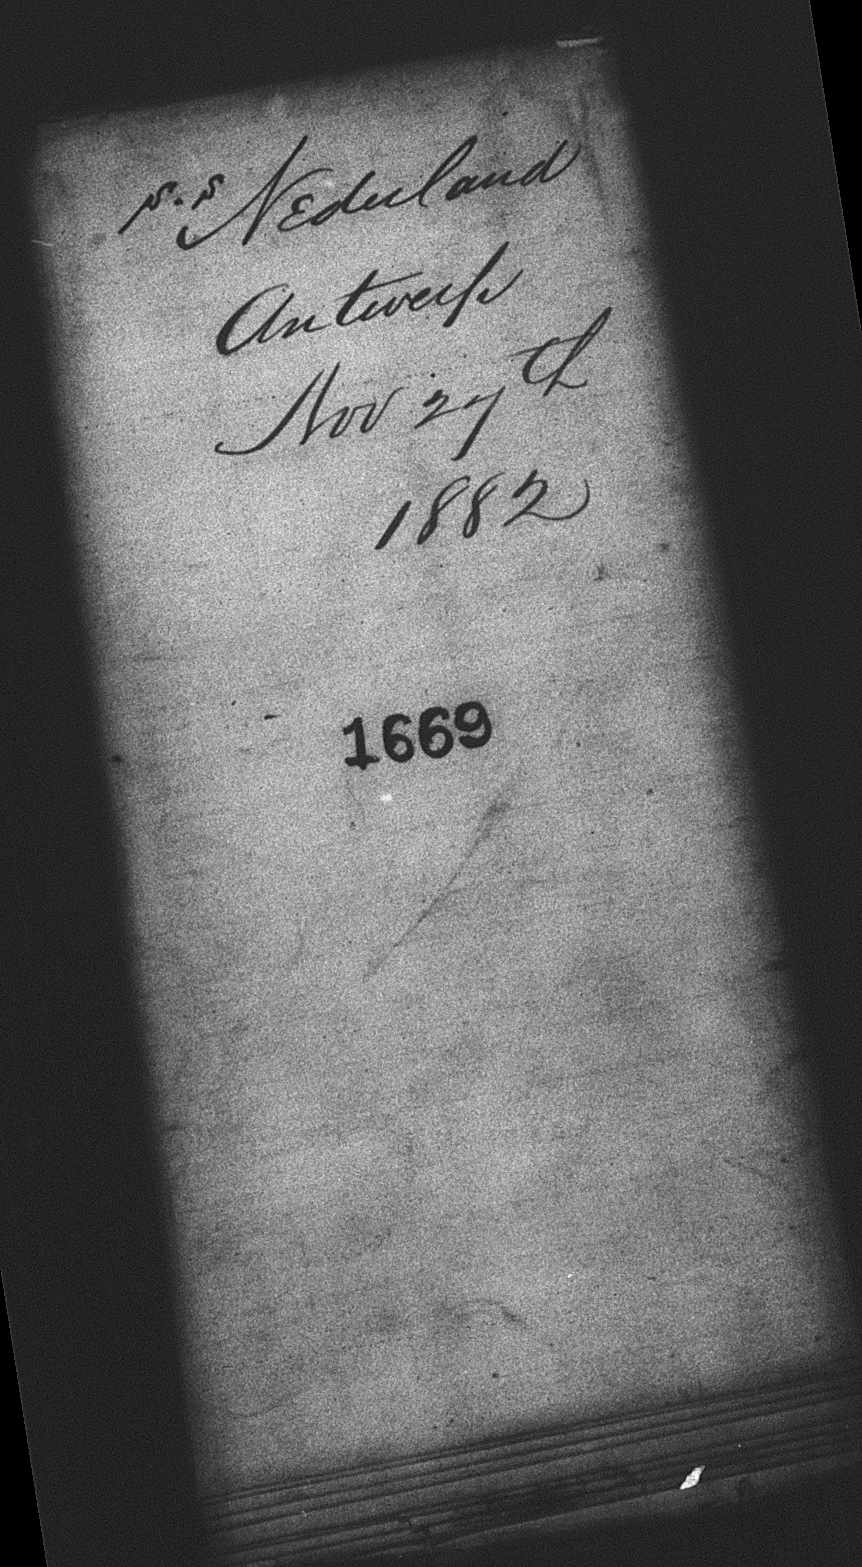 s.s Nederland
Antwerp
Nov 27th
1882
1669